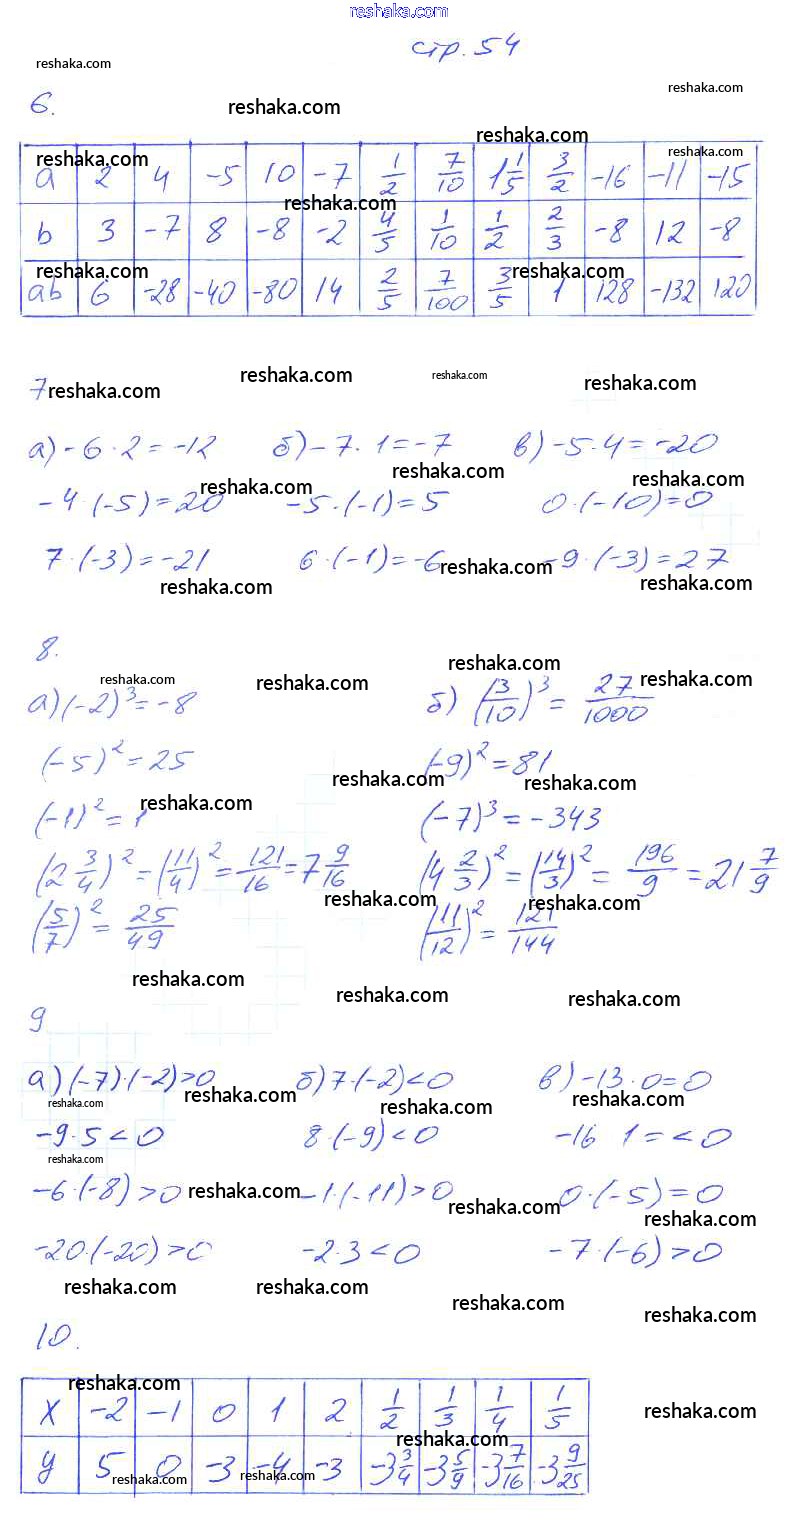 reshaka.com
стр. 54
6.
a 2 4 -5 10 -7 1/2 7/10 1 1/5 3/2 -16 -11 -15
b 3 -7 8 -8 -2 4/5 1/10 1/2 2/3 -8 12 -8
ab 6 -28 -40 -80 14 2/5 7/100 3/5 1 128 -132 120
7
а) -6·2=-12 б) -7·1=-7 в) -5·4=-20
-4·(-5)=20 -5·(-1)=5 0·(-10)=0
7·(-3)=-21 6·(-1)=-6 -9·(-3)=27
8.
а) (-2)³=-8 б) (3/10)³=27/1000
(-5)²=25 (-9)²=81
(-1)²=1 (-7)³=-343
(2 3/4)²=(11/4)²=121/16=7 9/16 (4 2/3)²=(14/3)²=196/9=21 7/9
(5/7)²=25/49 (11/12)²=121/144
9
а) (-7)·(-2)>0 б) 7·(-2)<0 в) -13·0=0
-9·5<0 8·(-9)<0 -16 1=<0
-6·(-8)>0 -1·(-11)>0 0·(-5)=0
-20·(-20)>0 -2·3<0 -7·(-6)>0
10.
x -2 -1 0 1 2 1/2 1/3 1/4 1/5
y 5 0 -3 -4 -3 -3 3/4 -3 5/9 -3 7/16 -3 9/25